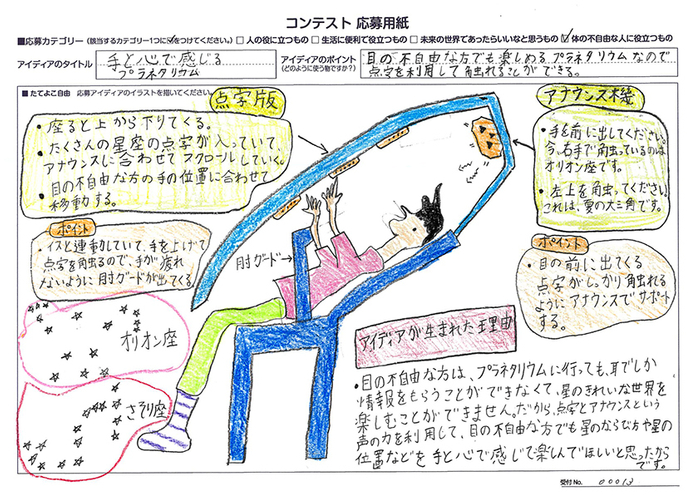 コンテスト 応募用紙
■応募カテゴリー(該当するカテゴリー1つに☑をつけてください。) □ 人の役に立つもの □ 生活に便利で役立つもの □ 未来の世界であったらいいなと思うもの ☑ 体の不自由な人に役立つもの
アイディアのタイトル
手と心で感じる
プラネタリウム
アイディアのポイント
(どのように使う物ですか?)
目の不自由な方でも楽しめるプラネタリウムなので
点字を利用して触れることができる。
■たてよこ自由 応募アイディアのイラストを描いてください
点字版
・座ると上から下りてくる。
・たくさんの星座の点字が入っていて、
アナウンスに合わせてスクロールしていく。
・目の不自由な方の手の位置に合わせて
移動する。
アナウンス機
・手を前に出してください。
今、右手で触っているのは
オリオン座です。
・左上を触ってください。
これは、夏の大三角です。
ポイント
・イスと連動していて、手を上げて
点字を触るので、手が疲れ
ないように肘ガードが出てくる
肘ガード
ポイント
・目の前に出てくる
点字がしっかり触れる
ようにアナウンスでサポート
する。
オリオン座
さそり座
アイディアが生まれた理由
・目の不自由な方は、プラネタリウムに行っても、耳でしか
情報をもらうことができなくて、星のきれいな世界を
楽しむことができません。だから、点字とアナウンスという
声の力を利用して、目の不自由な方でも星のならび方や星の
位置などを手と心で感じて楽しんでほしいと思ったから
です。
受付No. 00013